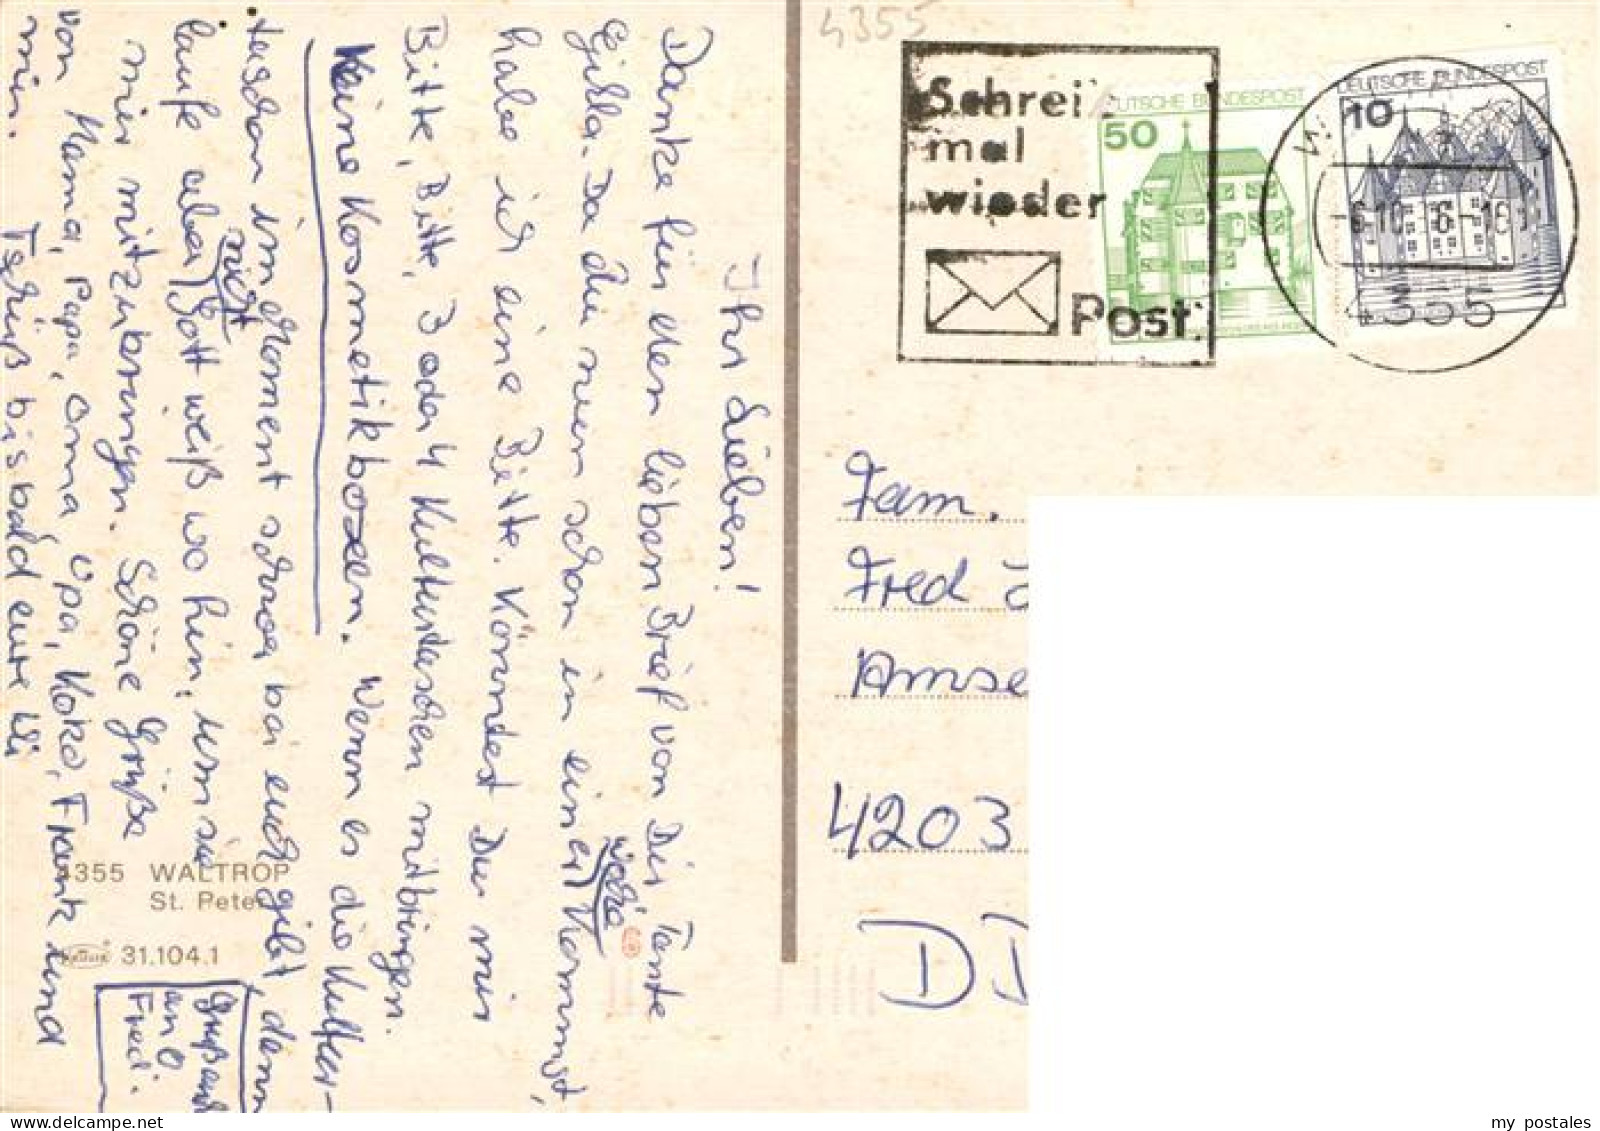 4355
Schrei
mal
wieder
Post
DEUTSCHE BUNDESPOST
50
DEUTSCHE BUNDESPOST
10
-6.10. 6-18
4355
Ihr Lieben!
Danke für den lieben Brief von Dir Tante
Gisela. Da du nun schon in einer Woche kommst,
habe ich eine Bitte. Könntest Du mir
Bitte, Bitte, 3 oder 4 Kulturtaschen mitbringen.
Keine Kosmetikboxen. Wenn es die Kultur-
taschen im Moment schwer bei euch gibt, dann
laufe aber nicht Gott weiß wo hin, um sie
mir mitzubringen. Schöne Grüße
von Mama, Papa, Oma, Opa, Koko, Frank und
mir. Tschüß bis bald eure
Gruß auch
an O
Fred.
4355 WALTROP
St. Peter
31.104.1
Fam.
Fred
Amse
4203
D
my postales